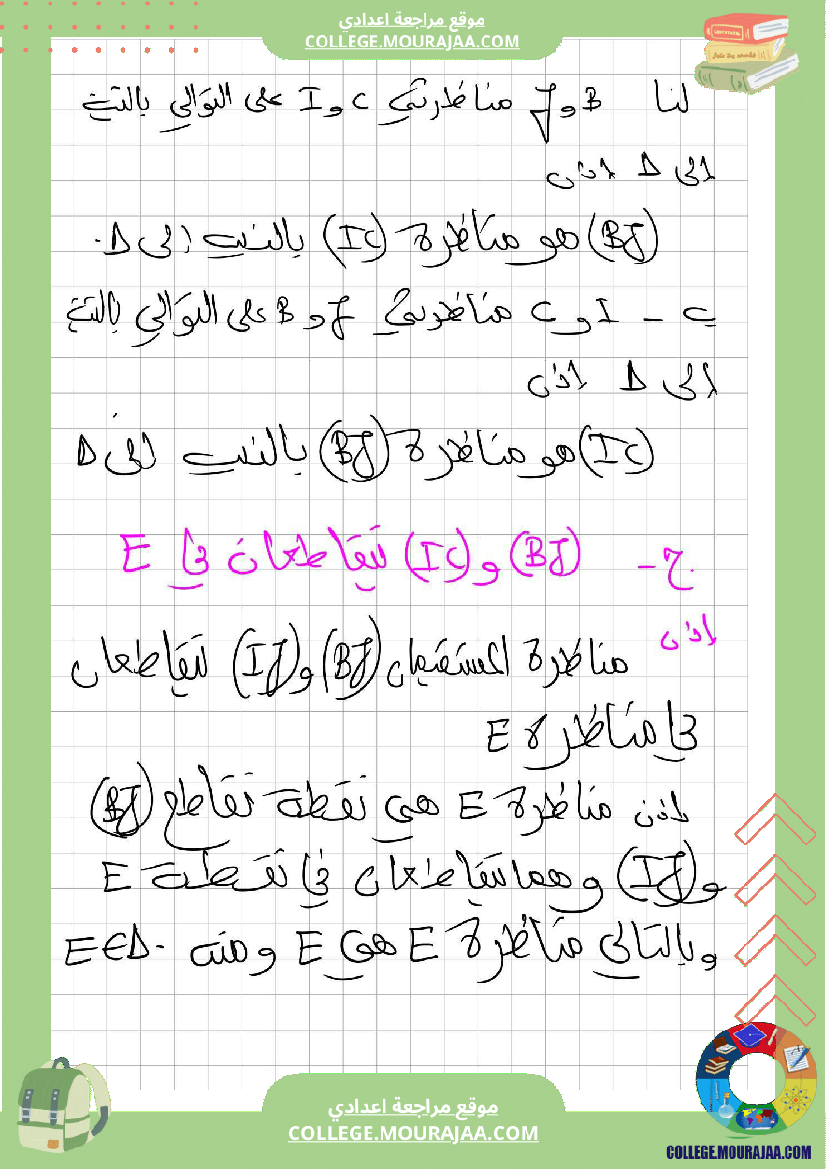 موقع مراجعة اعدادي
COLLEGE.MOURAJAA.COM
لنا B و J مناظرتي C و I على التوالي بالنسبة
الى Δ اذن
(BJ) هو مناظرة (IC) بالنسبة إلى Δ.
ب - I و C مناظرتي J و B على التوالي بالنسبة
الى Δ اذن
(IC) هو مناظرة (BJ) بالنسبة إلى Δ
ج - (BJ) و (IC) تتقاطعان في E
اذن
مناظرة المستقيمان (BJ) و (IJ) تتقاطعان
في مناظرة E
اذن مناظرة E هي نقطة تقاطع (BJ)
و (IJ) وهما تتقاطعان في نقطة E
وبالتالي مناظرة E هي E ومنه E∈Δ.
موقع مراجعة اعدادي
COLLEGE.MOURAJAA.COM
COLLEGE.MOURAJAA.COM